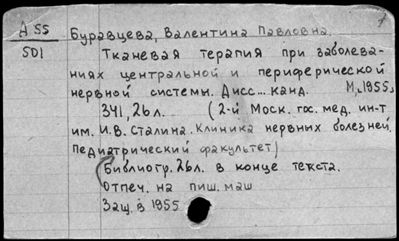 А 55 Буравцева, Валентина Павловна.
501 Тканевая терапия при заболева-
ниях центральной и периферической
нервной системы. Дисс... канд. М., 1955,
341, 26 л. (2-й Моск. гос. мед. ин-т
им. И.В. Сталина. Клиника нервних болезней,
педиатрический факультет)
Библиогр. 26 л. в конце текста.
Отпеч. на пиш. маш
Защ. в 1955